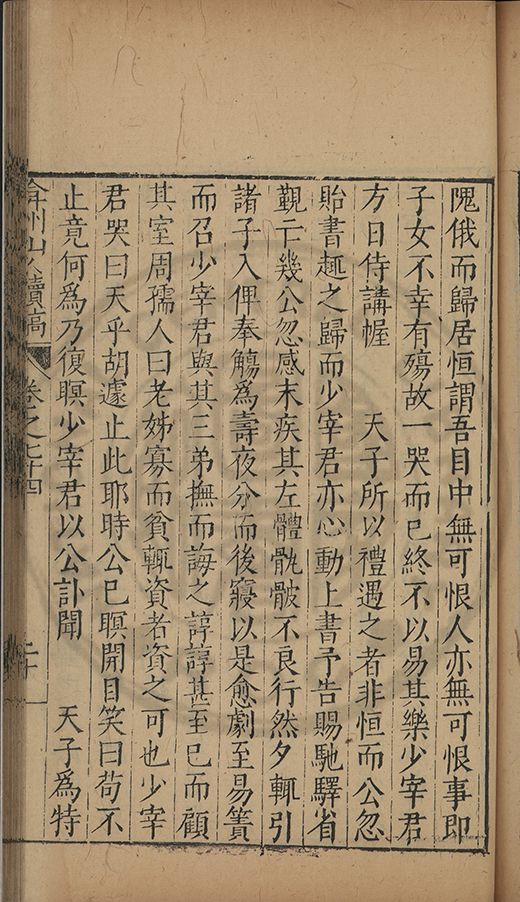 隗俄而歸居恒謂吾目中無可恨人亦無可恨事即
子女不幸有殤故一哭而已終不以易其樂少宰君
方日侍講幄　天子所以禮遇之者非恒而公忽
貽書趣之歸而少宰君亦心動上書予告賜馳驛省
覲亡幾公忽感末疾其左體骩骳不良行然夕輒引
諸子入俾奉觴為壽夜分而後寢以是愈劇至易簀
而召少宰君與其三弟撫而誨之諄諄甚至已而顧
其室周孺人曰老姊寡而貧輒資者資之可也少宰
君哭曰天乎胡遽止此耶時公已瞑開目笑曰苟不
止竟何為乃復瞑少宰君以公訃聞　天子為特
弇州山人續稿　卷之七十四　二十